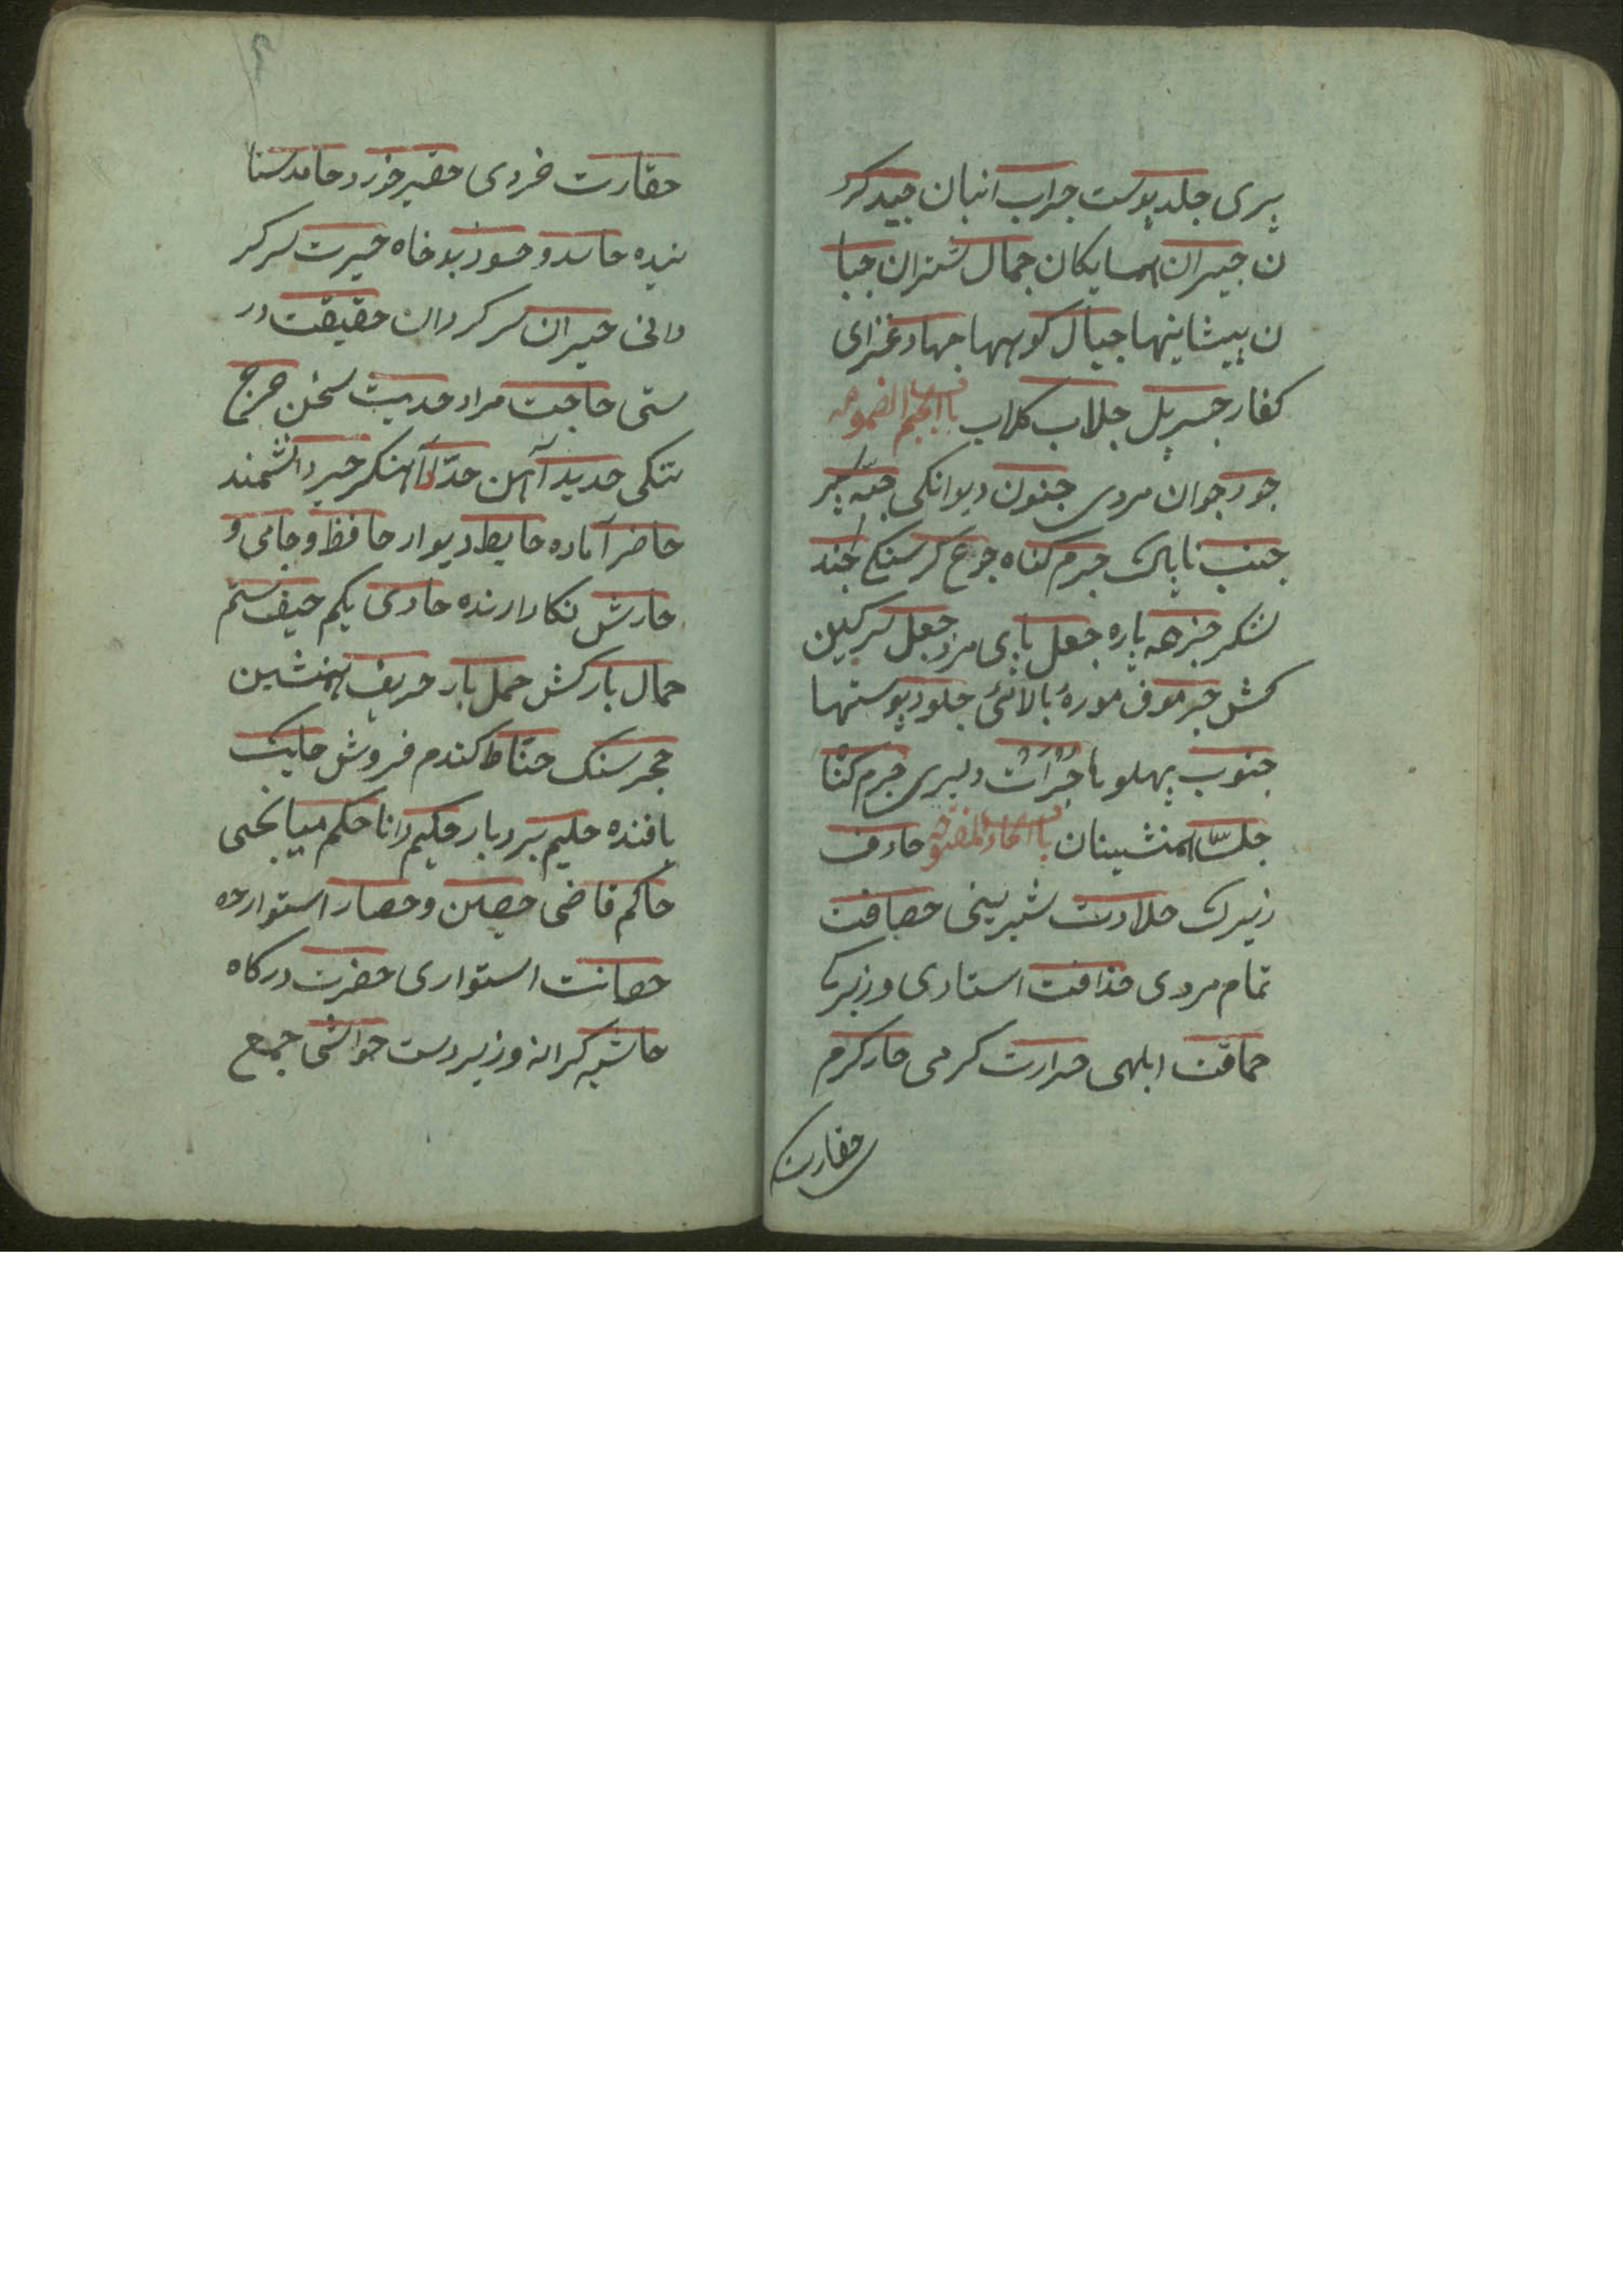 پیری جلد پوست جراب انبان جید کرد
ن جیران همسایکان جمال شتران جبا
ن پیشانیها جبال کوهها جهاد غزای
کفار جبریل جلاب کلاب باب الجیم المضمومه
جود جوان مردی جنون دیوانکی جبه سپر
جنب ناپاک جرم کناه جوع کرسنکی جند
لشکر جزعه پاره جعل پای مزد جعل سرکین
کش جرموق موزه بالائی جلود پوستها
جنوب پهلوها جرات دلیری جرم کناه
جلسا همنشینان باب الحاء المفتوحه حاذق
زیرک حلاوت شیرینی حصافت
تمام مردی حذاقت استادی و زیرکی
حماقت ابلهی حرارت کرمی حار کرم
حقارت
حقارت خردی حقیر خورد حامد ستا
ینده حاسد و حسود بدخاه حیرت سرکر
دانی حیران سرکردان حقیقت در
ستی حاجت مراد حدیث سخن حرج
تنکی حدید آهن حداد آهنکر حبر دانشمند
حاضر آماده حایط دیوار حافظ و حامی و
حارس نکادارنده حادی یکم حیف ستم
حمال بارکش حمل بار حریف همنشین
حجر سنک حناط کندم فروش حایک
بافنده حلیم بردبار حکیم دانا حکم میانجی
حاکم قاضی حصین و حصار استوار حه
حصانت استواری حضرت درکاه
حاشیه کرانه و زیردست حواشی جمع